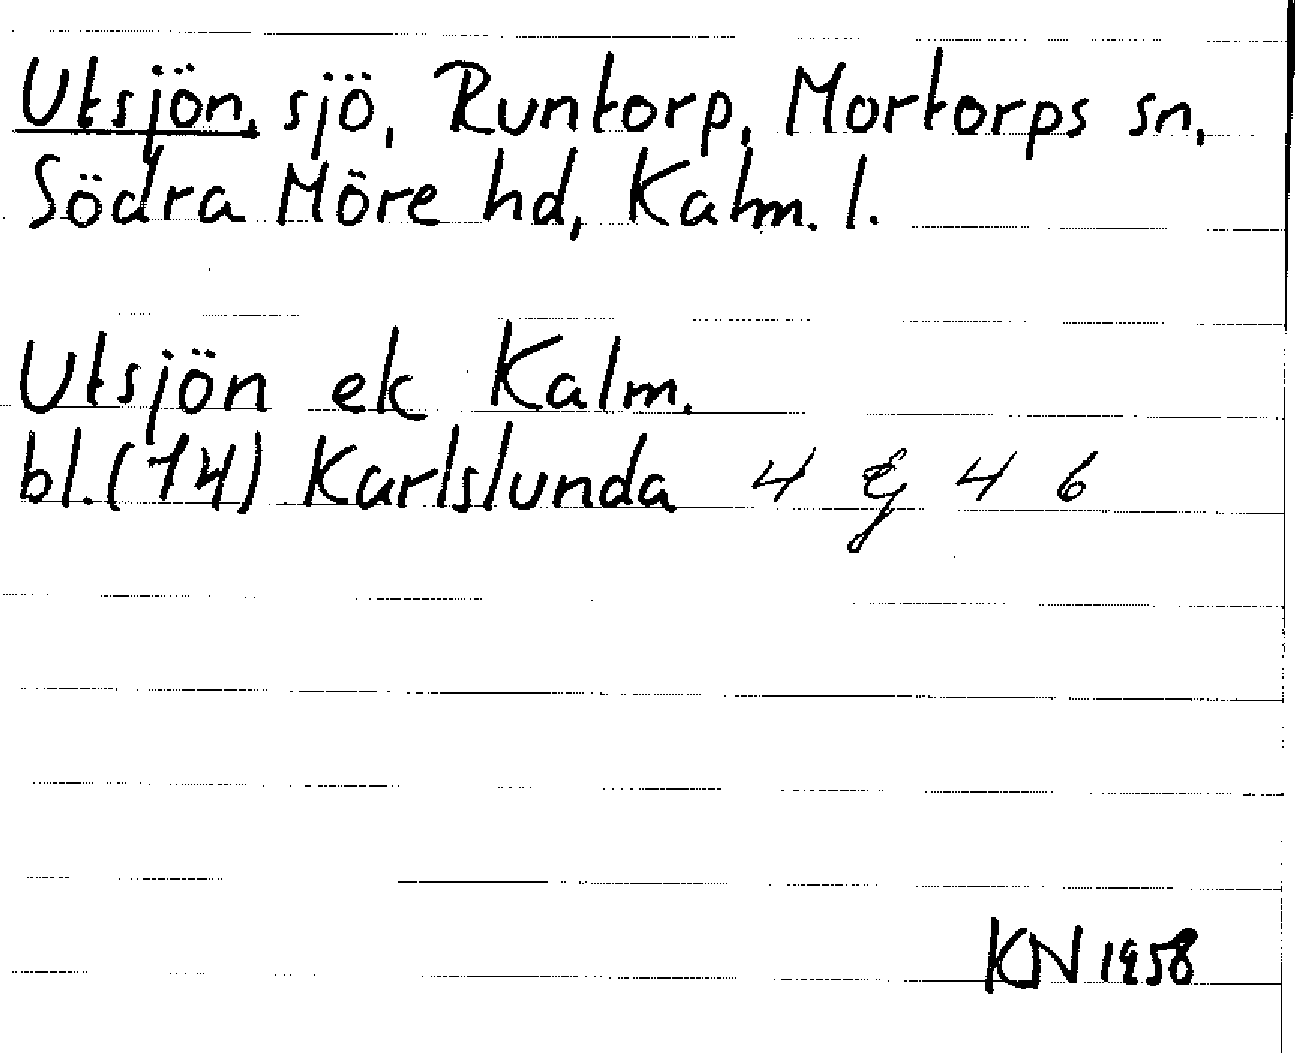 Utsjön, sjö, Runtorp, Mortorps sn,
Södra Möre hd, Kalm. l.
Utsjön ek Kalm.
bl. (14) Karlslunda 4 g 4 6
KN 1958